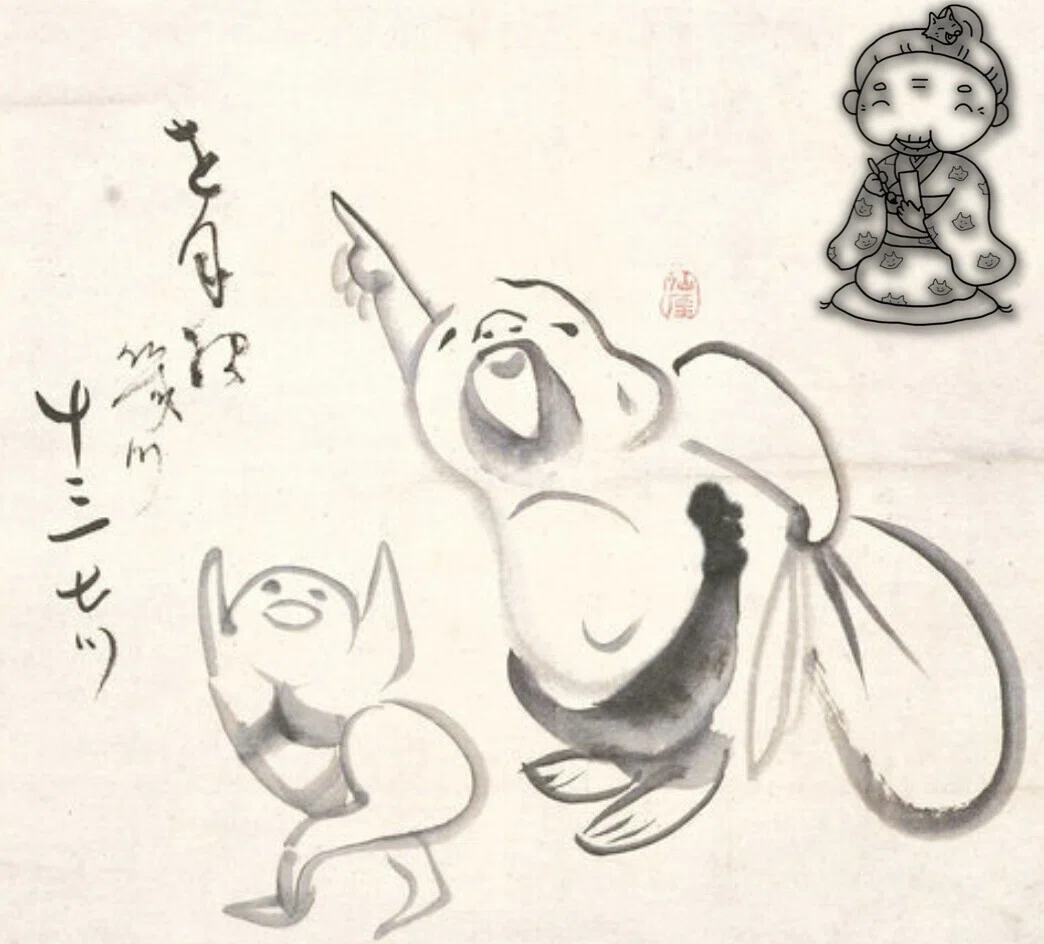 仙厓
を月様幾ツ
十三七ツ